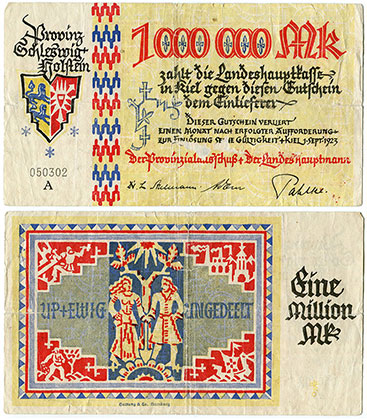 Provinz
Schleswig+
Holstein
050302
A
1000000 Mk
zahlt die Landeshauptkasse
in Kiel gegen diesen Gutschein
dem Einlieferer
DIESER GUTSCHEIN VERLIERT
EINEN MONAT NACH ERFOLGTER AUFFORDERUNG
ZUR EINLÖSUNG SEINE GÜLTIGKEIT + KIEL 1. SEPT. 1923
Der Provinzialausschuß + Der Landeshauptmann
Pahlke
UP+EWIG UNGEDEELT
Eine
Million
Mk